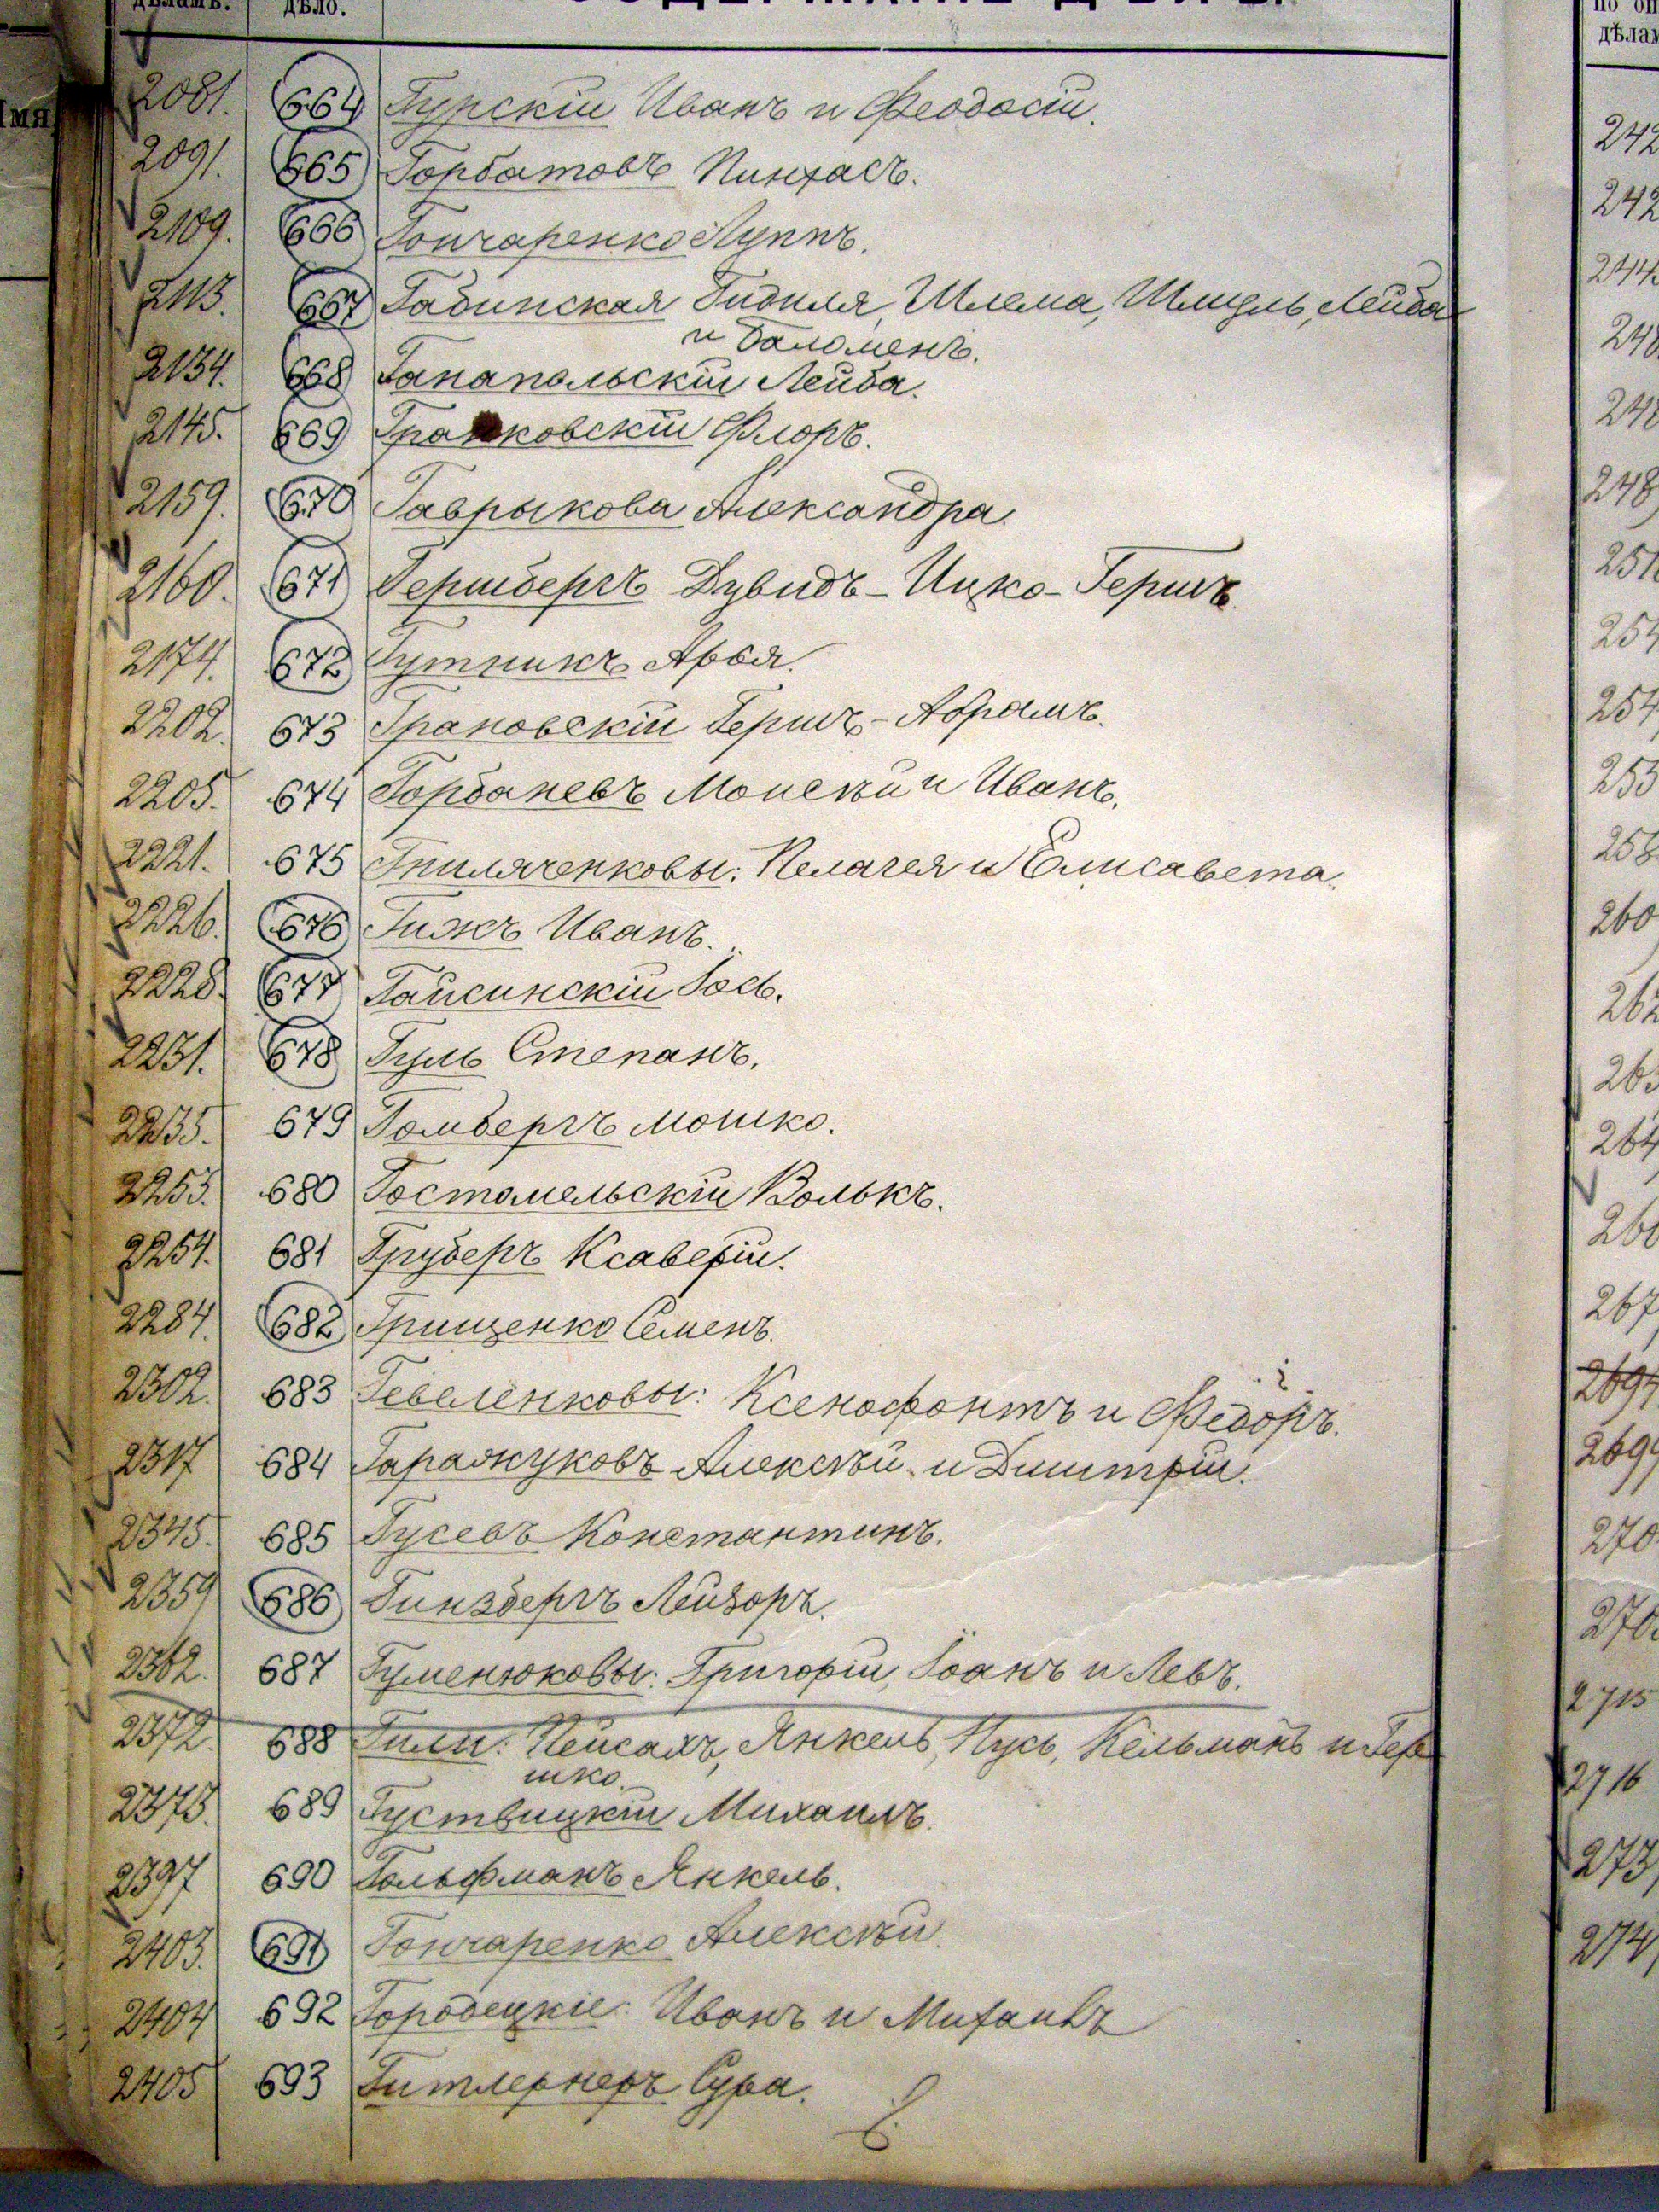 дѣламъ. дѣло. СОДЕРЖАНІЕ ДѢЛЪ.
2081. 664 Гурскій Иванъ и Феодосій.
2091. 665 Горбатовъ Пинхасъ.
2109. 666 Гончаренко Луппъ.
2113. 667 Габинская Гидиля, Шлема, Шмуль, Лейба
и Баломенъ.
2134. 668 Ганапольскій Лейба.
2145. 669 Гранковскій Флоръ.
2159. 670 Гаврыкова Александра.
2160. 671 Гершбергъ Дувидъ-Ицко-Гершъ
2174. 672 Гутникъ Арья.
2202. 673 Грановскій Гершъ-Абрамъ.
2205. 674 Горбаневъ Моисей и Иванъ.
2221. 675 Гниляченковы: Пелагея и Елисавета.
2226. 676 Гижъ Иванъ.
2228. 677 Гайсинскій Іось.
2231. 678 Гуль Степанъ.
2235. 679 Гомбергъ Мошко.
2253. 680 Гостомельскій Волькъ.
2254. 681 Груберъ Ксаверій.
2284. 682 Грищенко Семенъ.
2302. 683 Гевеленковы: Ксенофонтъ и Федоръ.
2317 684 Гаражуковъ Алексѣй и Димитрій.
2345. 685 Гусевъ Константинъ.
2359 686 Гинзбергъ Лейзоръ.
2362. 687 Гуменюковы: Григорій, Іоанъ и Левъ.
2372. 688 Гили: Пейсахъ, Янкель, Нусь, Кельманъ и Гер
шко.
2373. 689 Густвицкій Михаилъ.
2397 690 Гольфманъ Янкель.
2403. 691 Гончаренко Алексѣй.
2404 692 Городецкіе: Иванъ и Михаилъ
2405 693 Гитлернеръ Сура.